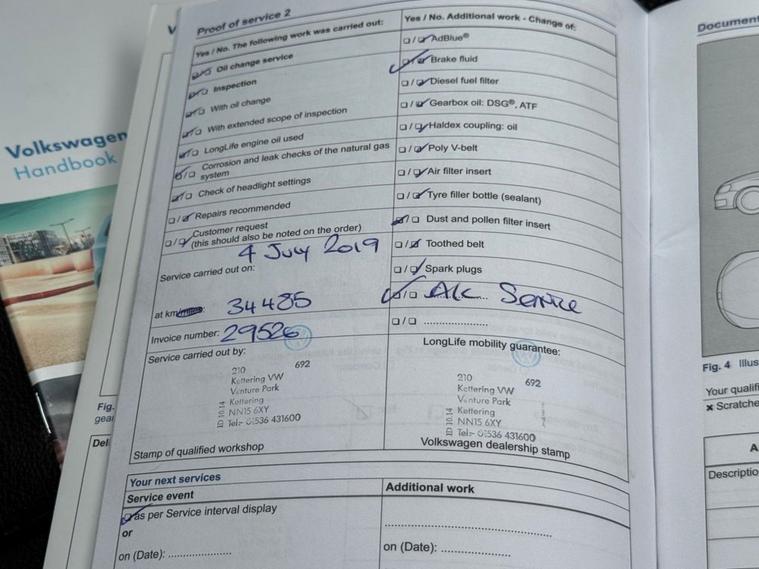 Volkswagen
Handbook
Proof of service 2
Yes / No. The following work was carried out:
Oil change service
Inspection
With oil change
With extended scope of inspection
LongLife engine oil used
Corrosion and leak checks of the natural gas
system
Check of headlight settings
Repairs recommended
Customer request
(this should also be noted on the order)
4 July 2019
Service carried out on:
at km : 34485
Invoice number: 29526
Service carried out by:
210 692
Kettering VW
Venture Park
Kettering
NN15 6XY
Tel:- 01536 431600
ID 10.14
Stamp of qualified workshop
Yes / No. Additional work - Change of:
AdBlue®
Brake fluid
Diesel fuel filter
Gearbox oil: DSG®, ATF
Haldex coupling: oil
Poly V-belt
Air filter insert
Tyre filler bottle (sealant)
Dust and pollen filter insert
Toothed belt
Spark plugs
A/c... Service
□/□ ......................
LongLife mobility guarantee:
210 692
Kettering VW
Venture Park
Kettering
NN15 6XY
Tel:- 01536 431600
ID 10.14
Volkswagen dealership stamp
Your next services
Service event
as per Service interval display
or
on (Date): ....................
Additional work
......................................................
on (Date): ......................
Fig.
gear
Del
Document
Fig. 4 Illus
Your qualifi
× Scratche
A
Descriptio